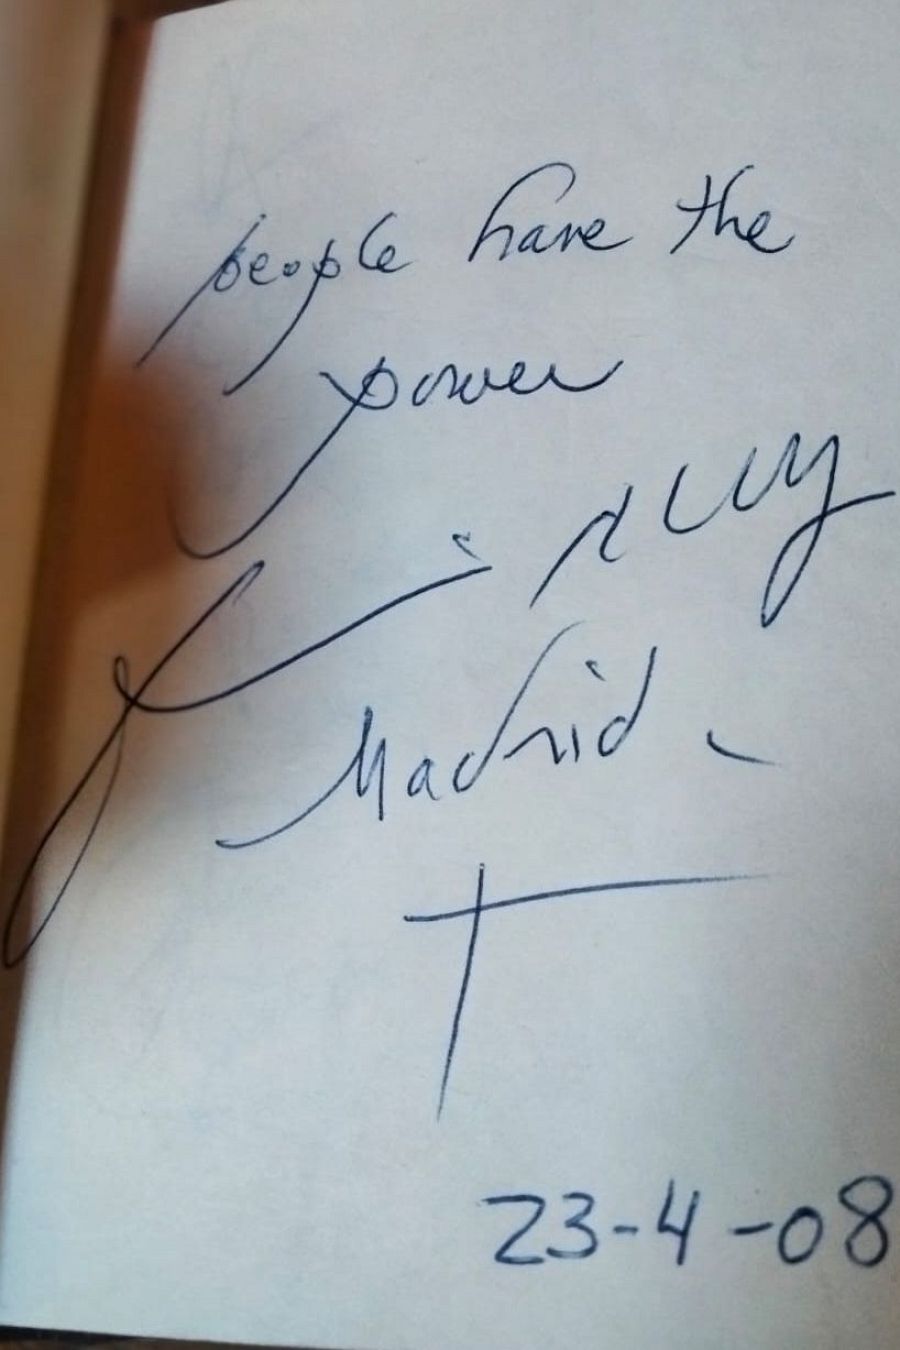 people have the
power
Madrid
23-4-08